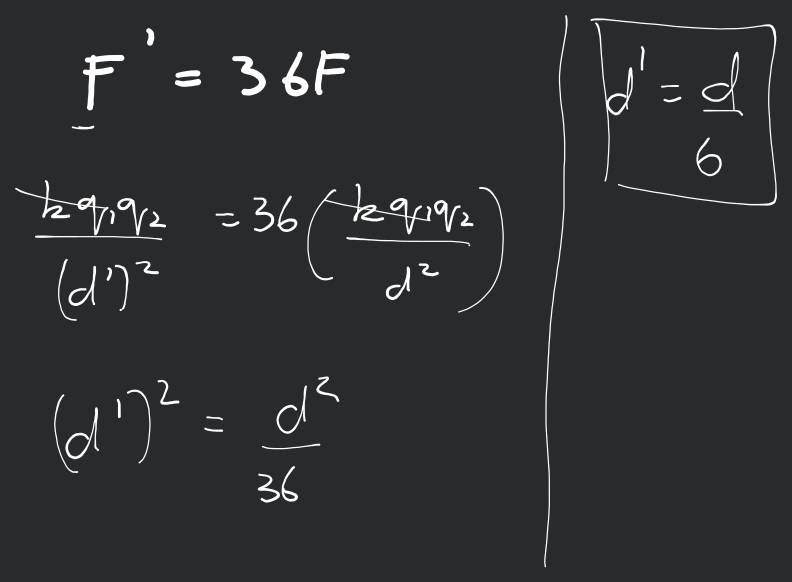 F' = 36F
kq₁q₂/(d')² = 36(kq₁q₂/d²)
(d')² = d²/36
d' = d/6